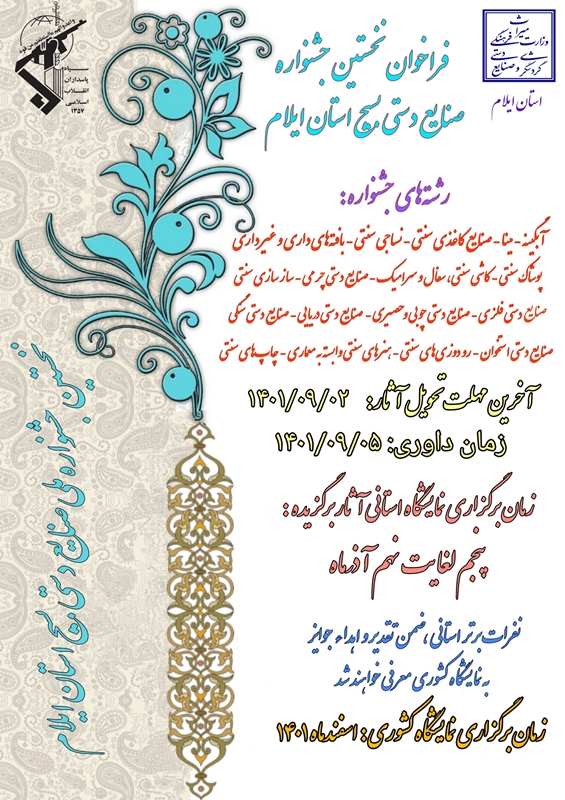 سپاه
پاسداران
انقلاب
اسلامی
۱۳۵۷
وزارت میراث فرهنگی
گردشگری و صنایع دستی
استان ایلام
فراخوان نخستین جشنواره
صنایع دستی بسیج استان ایلام
رشته‌های جشنواره:
آبگینه - مینا - صنایع کاغذی سنتی - نساجی سنتی - بافته‌های داری و غیرداری
پوشاک سنتی - کاشی سنتی، سفال و سرامیک - صنایع دستی چرمی - ساز سازی سنتی
صنایع دستی فلزی - صنایع دستی چوبی و حصیری - صنایع دستی دریایی - صنایع دستی سنگی
صنایع دستی استخوان - رودوزی‌های سنتی - هنرهای سنتی وابسته به معماری - چاپ‌های سنتی
آخرین مهلت تحویل آثار: ۱۴۰۱/۰۹/۰۲
زمان داوری: ۱۴۰۱/۰۹/۰۵
زمان برگزاری نمایشگاه استانی آثار برگزیده:
پنجم لغایت نهم آذرماه
نفرات برتر استانی، ضمن تقدیر و اهداء جوایز
به نمایشگاه کشوری معرفی خواهند شد
زمان برگزاری نمایشگاه کشوری: اسفندماه ۱۴۰۱
نخستین جشنواره ملی صنایع دستی بسیج استان ایلام